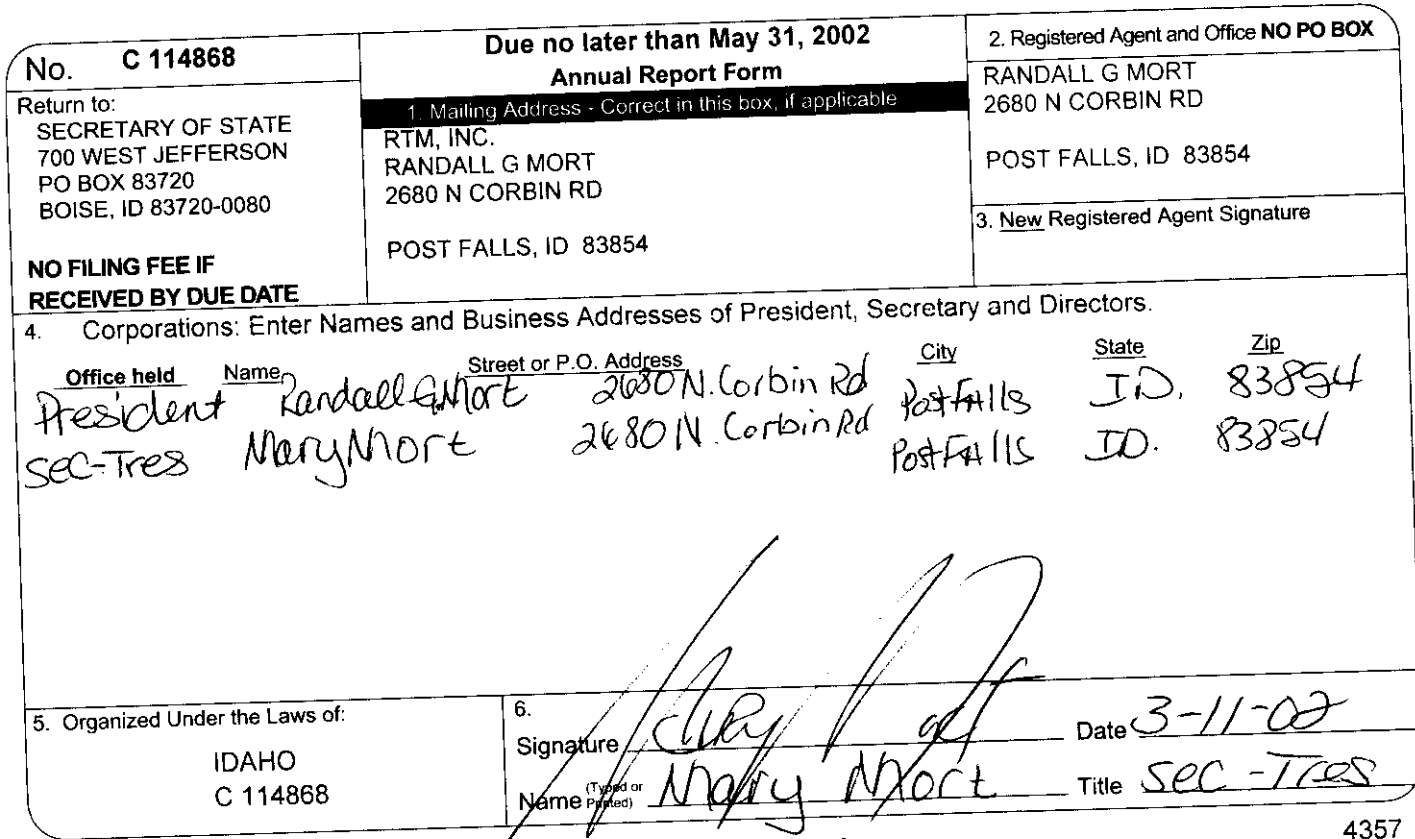 No. C 114868
Return to:
SECRETARY OF STATE
700 WEST JEFFERSON
PO BOX 83720
BOISE, ID 83720-0080
NO FILING FEE IF
RECEIVED BY DUE DATE
Due no later than May 31, 2002
Annual Report Form
1. Mailing Address - Correct in this box, if applicable
RTM, INC.
RANDALL G MORT
2680 N CORBIN RD
POST FALLS, ID 83854
2. Registered Agent and Office NO PO BOX
RANDALL G MORT
2680 N CORBIN RD
POST FALLS, ID 83854
3. New Registered Agent Signature
4. Corporations: Enter Names and Business Addresses of President, Secretary and Directors.
Office held Name Street or P.O. Address City State Zip
President Randall G. Mort 2680 N. Corbin Rd Post Falls ID. 83854
Sec-Tres Mary Mort 2680 N. Corbin Rd Post Falls ID. 83854
5. Organized Under the Laws of:
IDAHO
C 114868
6.
Signature Mary Mort Date 3-11-02
Name (Typed or Printed) Mary Mort Title Sec-Tres
4357